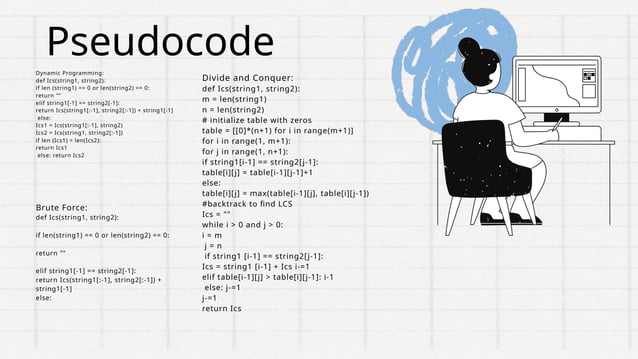 Pseudocode
Dynamic Programming:
def lcs(string1, string2):
if len (string1) == 0 or len(string2) == 0:
return ""
elif string1[-1] == string2[-1]:
return lcs(string1[:-1], string2[:-1]) + string1[-1]
else:
lcs1 = lcs(string1[:-1], string2)
lcs2 = lcs(string1, string2[:-1])
if len (lcs1) > len(lcs2):
return lcs1
else: return lcs2
Brute Force:
def lcs(string1, string2):
if len(string1) == 0 or len(string2) == 0:
return ""
elif string1[-1] == string2[-1]:
return lcs(string1[:-1], string2[:-1]) +
string1[-1]
else:
Divide and Conquer:
def lcs(string1, string2):
m = len(string1)
n = len(string2)
# initialize table with zeros
table = [[0]*(n+1) for i in range(m+1)]
for i in range(1, m+1):
for j in range(1, n+1):
if string1[i-1] == string2[j-1]:
table[i][j] = table[i-1][j-1]+1
else:
table[i][j] = max(table[i-1][j], table[i][j-1])
#backtrack to find LCS
lcs = ""
while i > 0 and j > 0:
i = m
j = n
if string1 [i-1] == string2[j-1]:
lcs = string1 [i-1] + lcs i-=1
elif table[i-1][j] > table[i][j-1]: i-1
else: j-=1
j-=1
return lcs